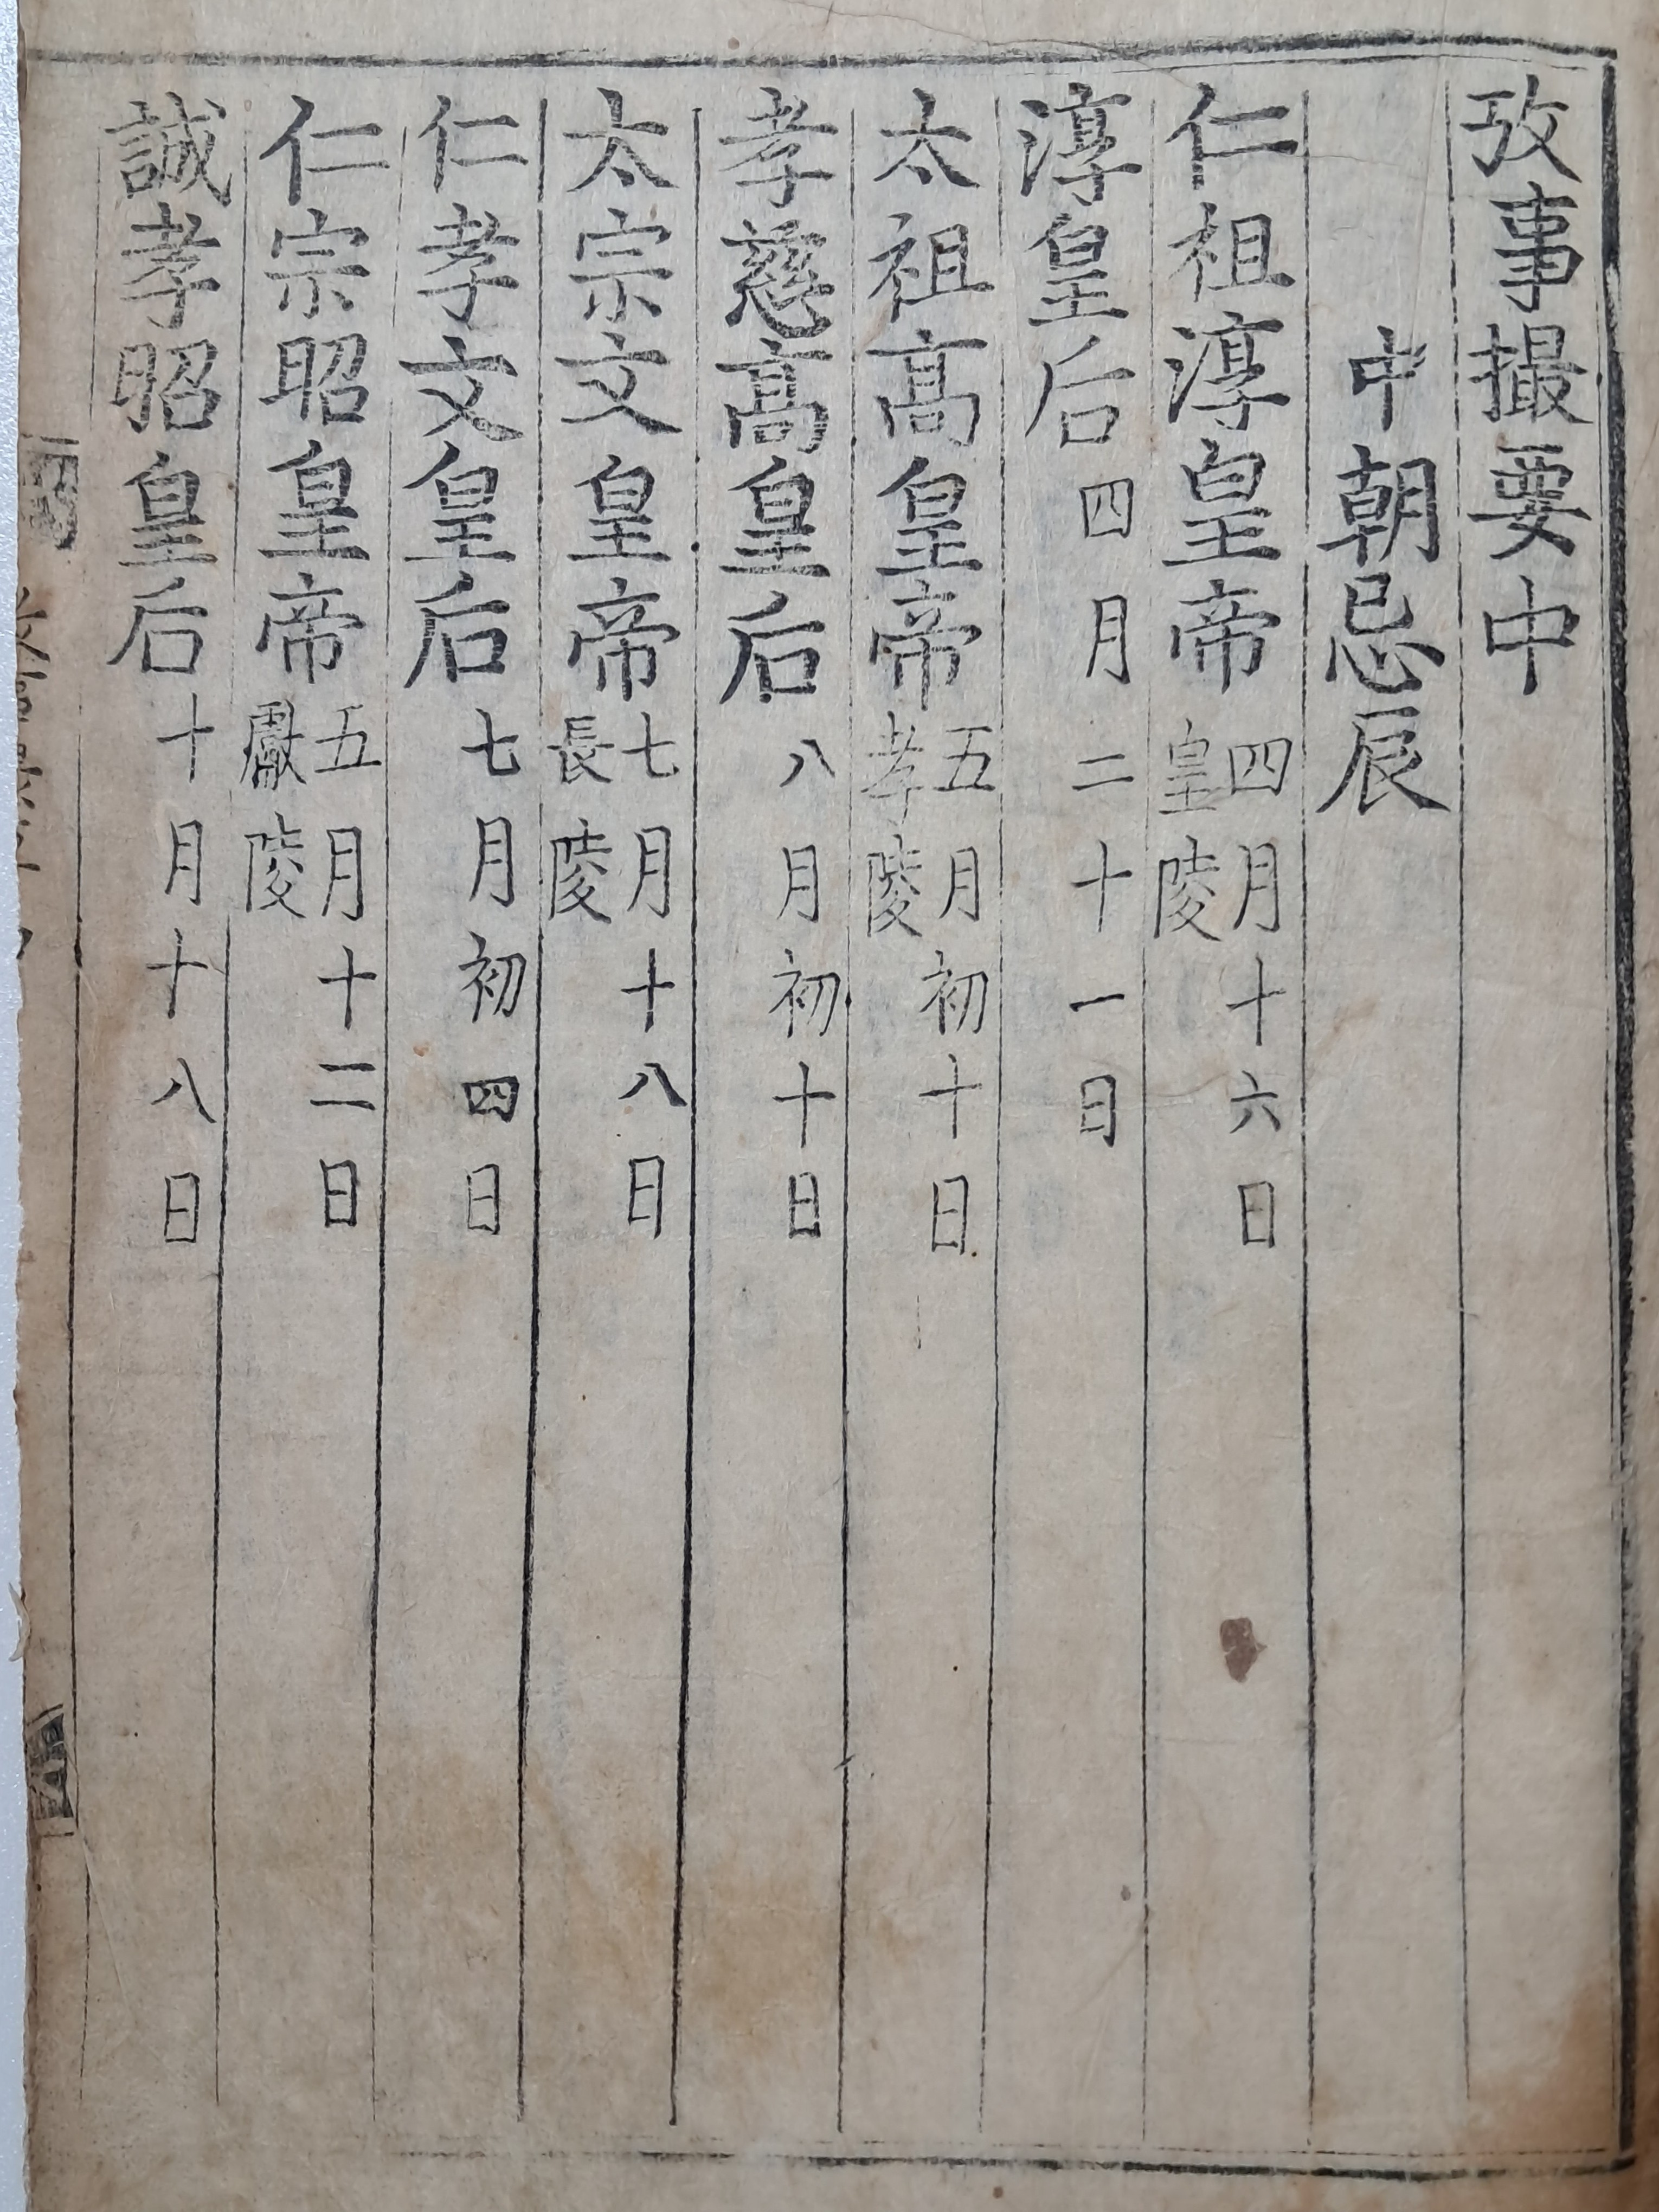 攷事撮要中
中朝忌辰
仁祖淳皇帝四月十六日皇陵
淳皇后四月二十一日
太祖高皇帝五月初十日孝陵
孝慈高皇后八月初十日
太宗文皇帝七月十八日長陵
仁孝文皇后七月初四日
仁宗昭皇帝五月十二日獻陵
誠孝昭皇后十月十八日